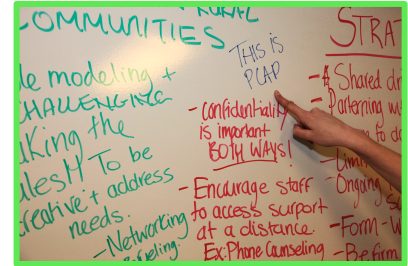 COMMUNITIES
RURAL
modeling +
CHALLENGING
the
To be
creative + address
needs.
- Networking
THIS IS
PCAP
- confidentiality
is important
BOTH WAYS!
- Encourage staff
to access surport
at a distance.
Ex: Phone Counseling
STRAT
- # Shared
- Parterning
to
- Ongoing
- Form
- Be firm